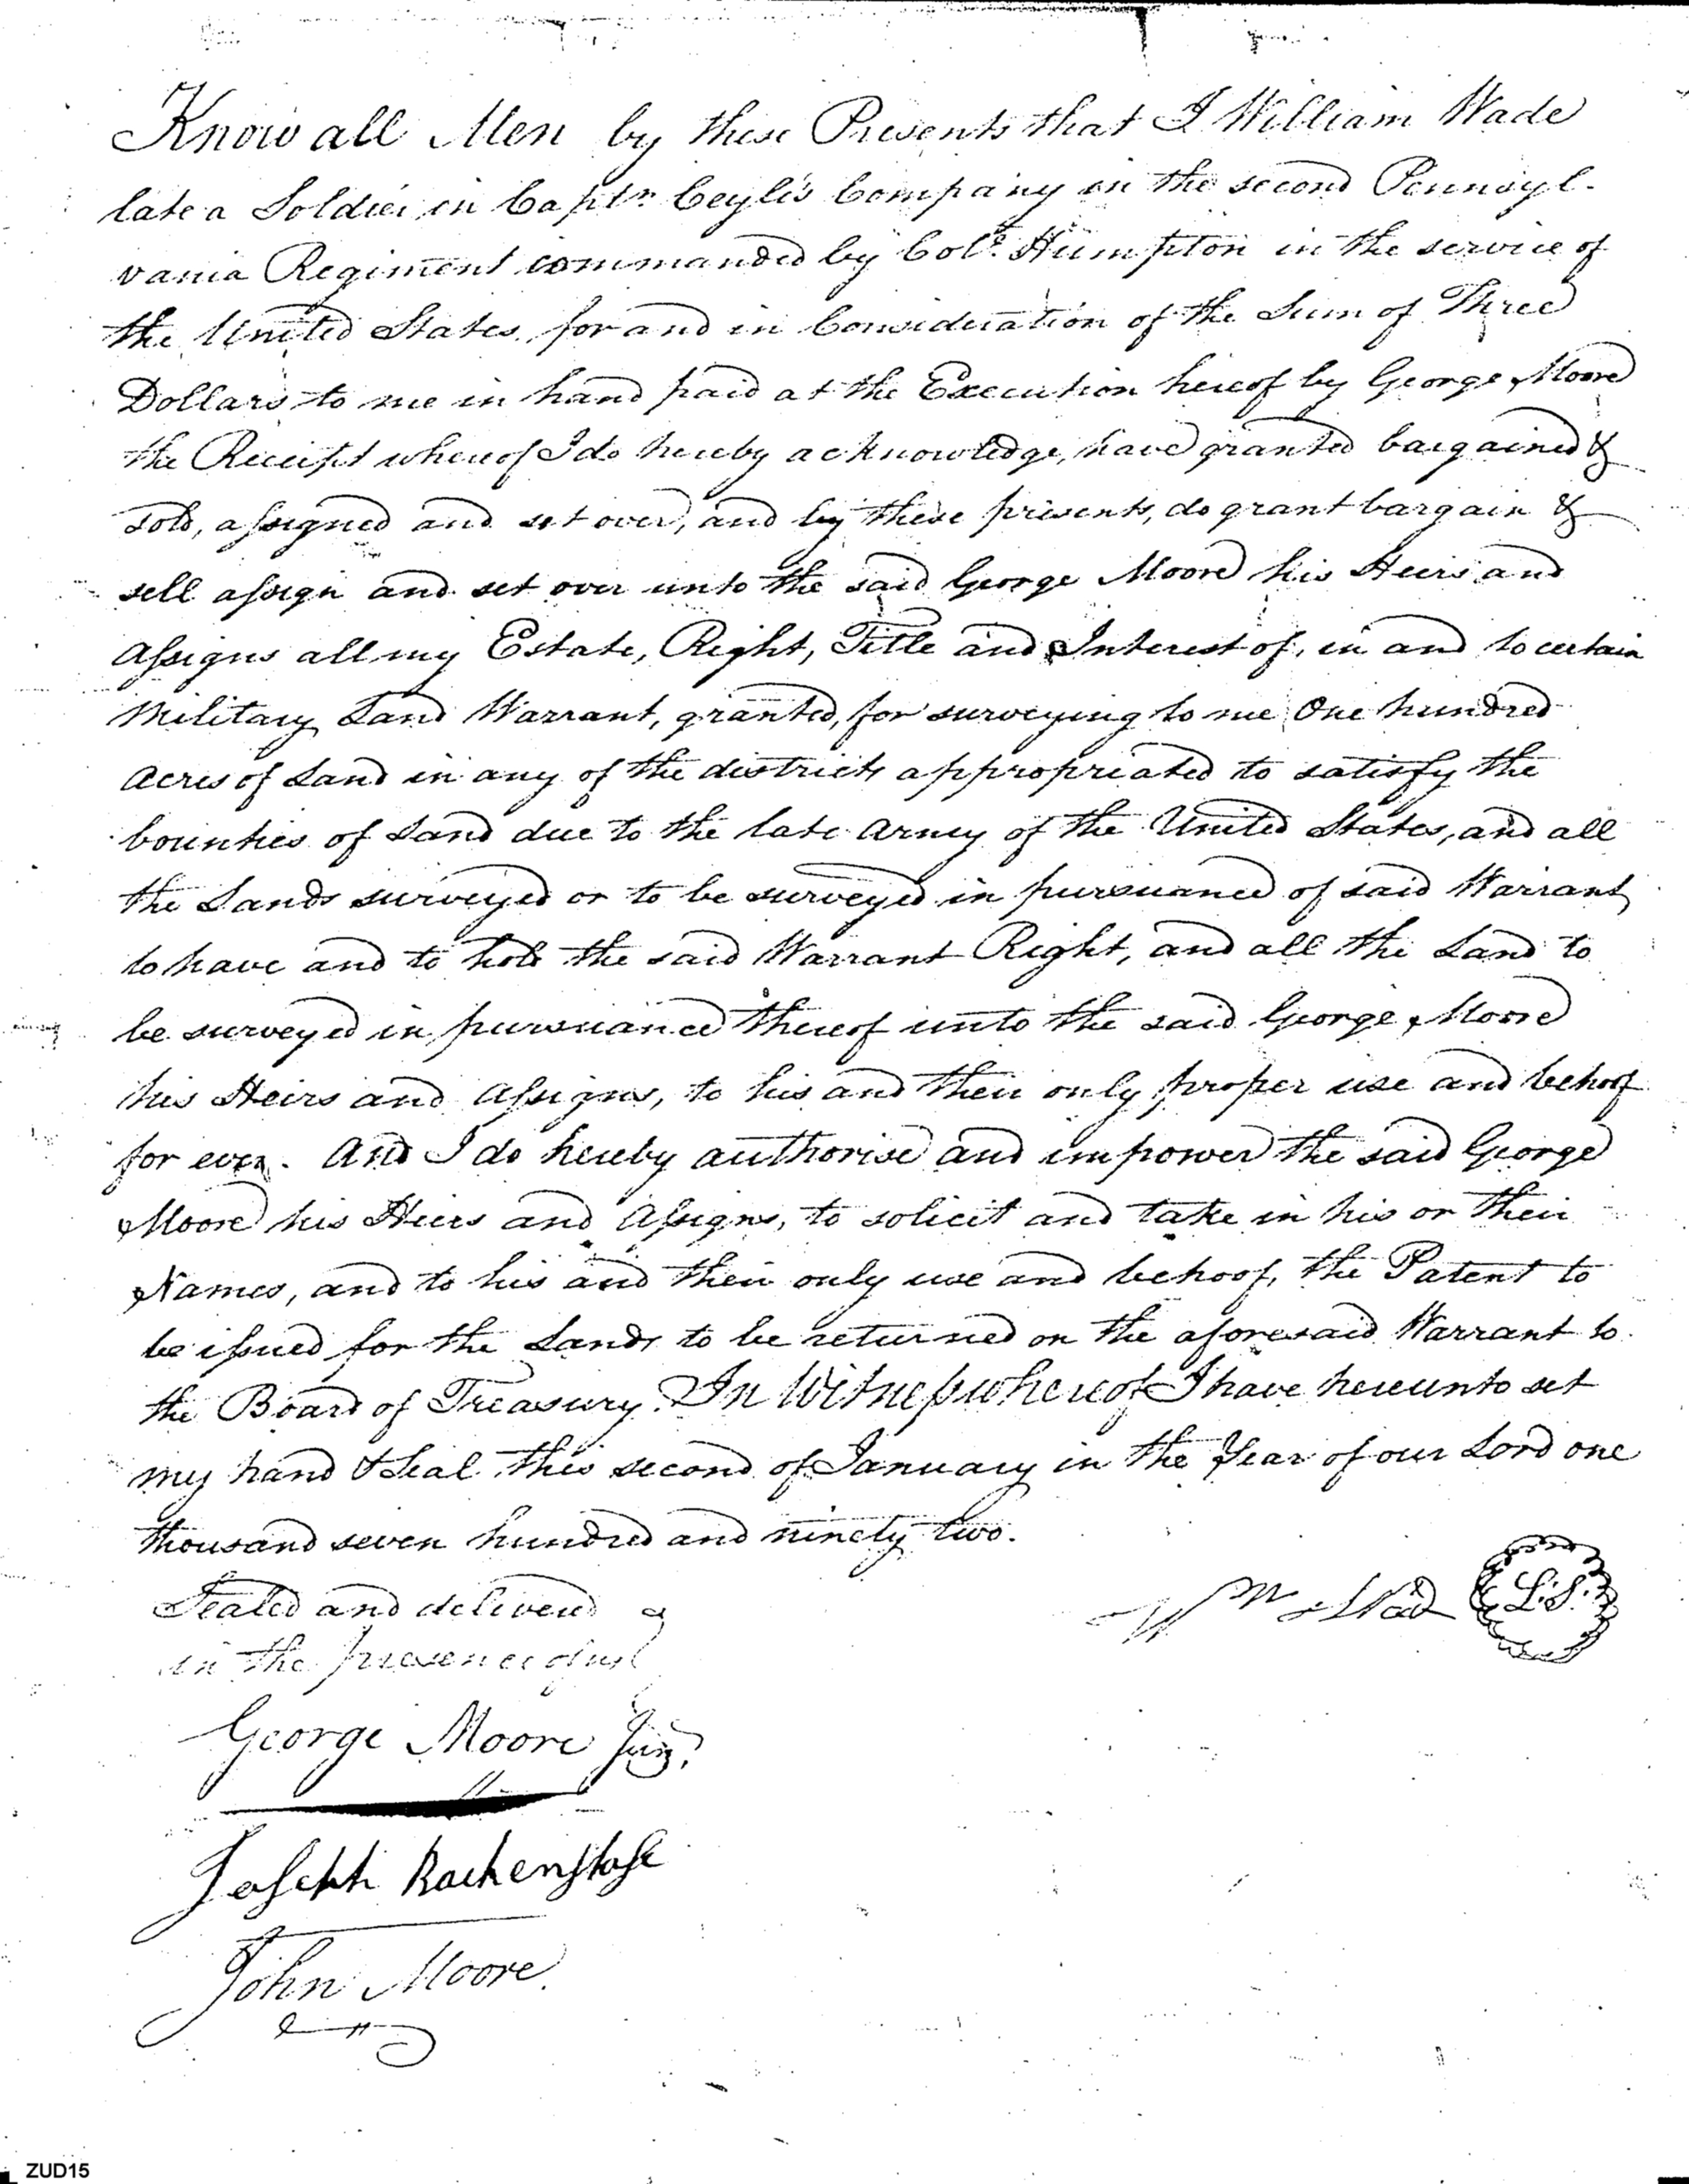 Know all Men by these Presents that I William Wade
late a Soldier in Captn. Ceyli's Company in the second Pennsyl-
vania Regiment commanded by Coll. Humpton in the service of
the United States, for and in Consideration of the Sum of Three
Dollars to me in hand paid at the Execution hereof by George Moore
the Receipt whereof I do hereby acknowledge, have granted bargained &
sold, assigned and set over, and by these presents, do grant bargain &
sell assign and set over unto the said George Moore his Heirs and
Assigns all my Estate, Right, Title and Interest of, in and to certain
Military Land Warrant, granted, for surveying to me One hundred
Acres of Land in any of the districts appropriated to satisfy the
bounties of Land due to the late Army of the United States, and all
the Lands surveyed or to be surveyed in pursuance of said Warrant
to have and to hold the said Warrant Right, and all the Land to
be surveyed in pursuance thereof unto the said George Moore
his Heirs and Assigns, to his and their only proper use and behoof
for ever. And I do hereby authorise and impower the said George
Moore his Heirs and Assigns, to solicit and take in his or their
Names, and to his and their only use and behoof, the Patent to
be issued for the Lands to be returned on the aforesaid Warrant to
the Board of Treasury. In Witness whereof I have hereunto set
my hand & Seal this second of January in the Year of our Lord one
thousand seven hundred and ninety two.
Sealed and delivered
in the presence of us
Wm Wade L.S.
George Moore Junr.
Joseph
John Moore
ZUD15